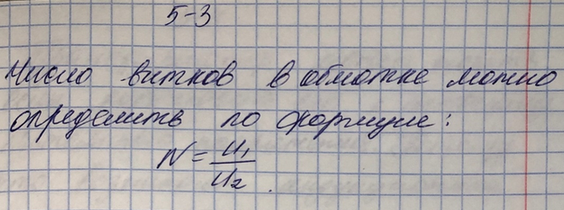 5-3
Число витков в обмотке можно
определить по формуле:
N = U₁/U₂.